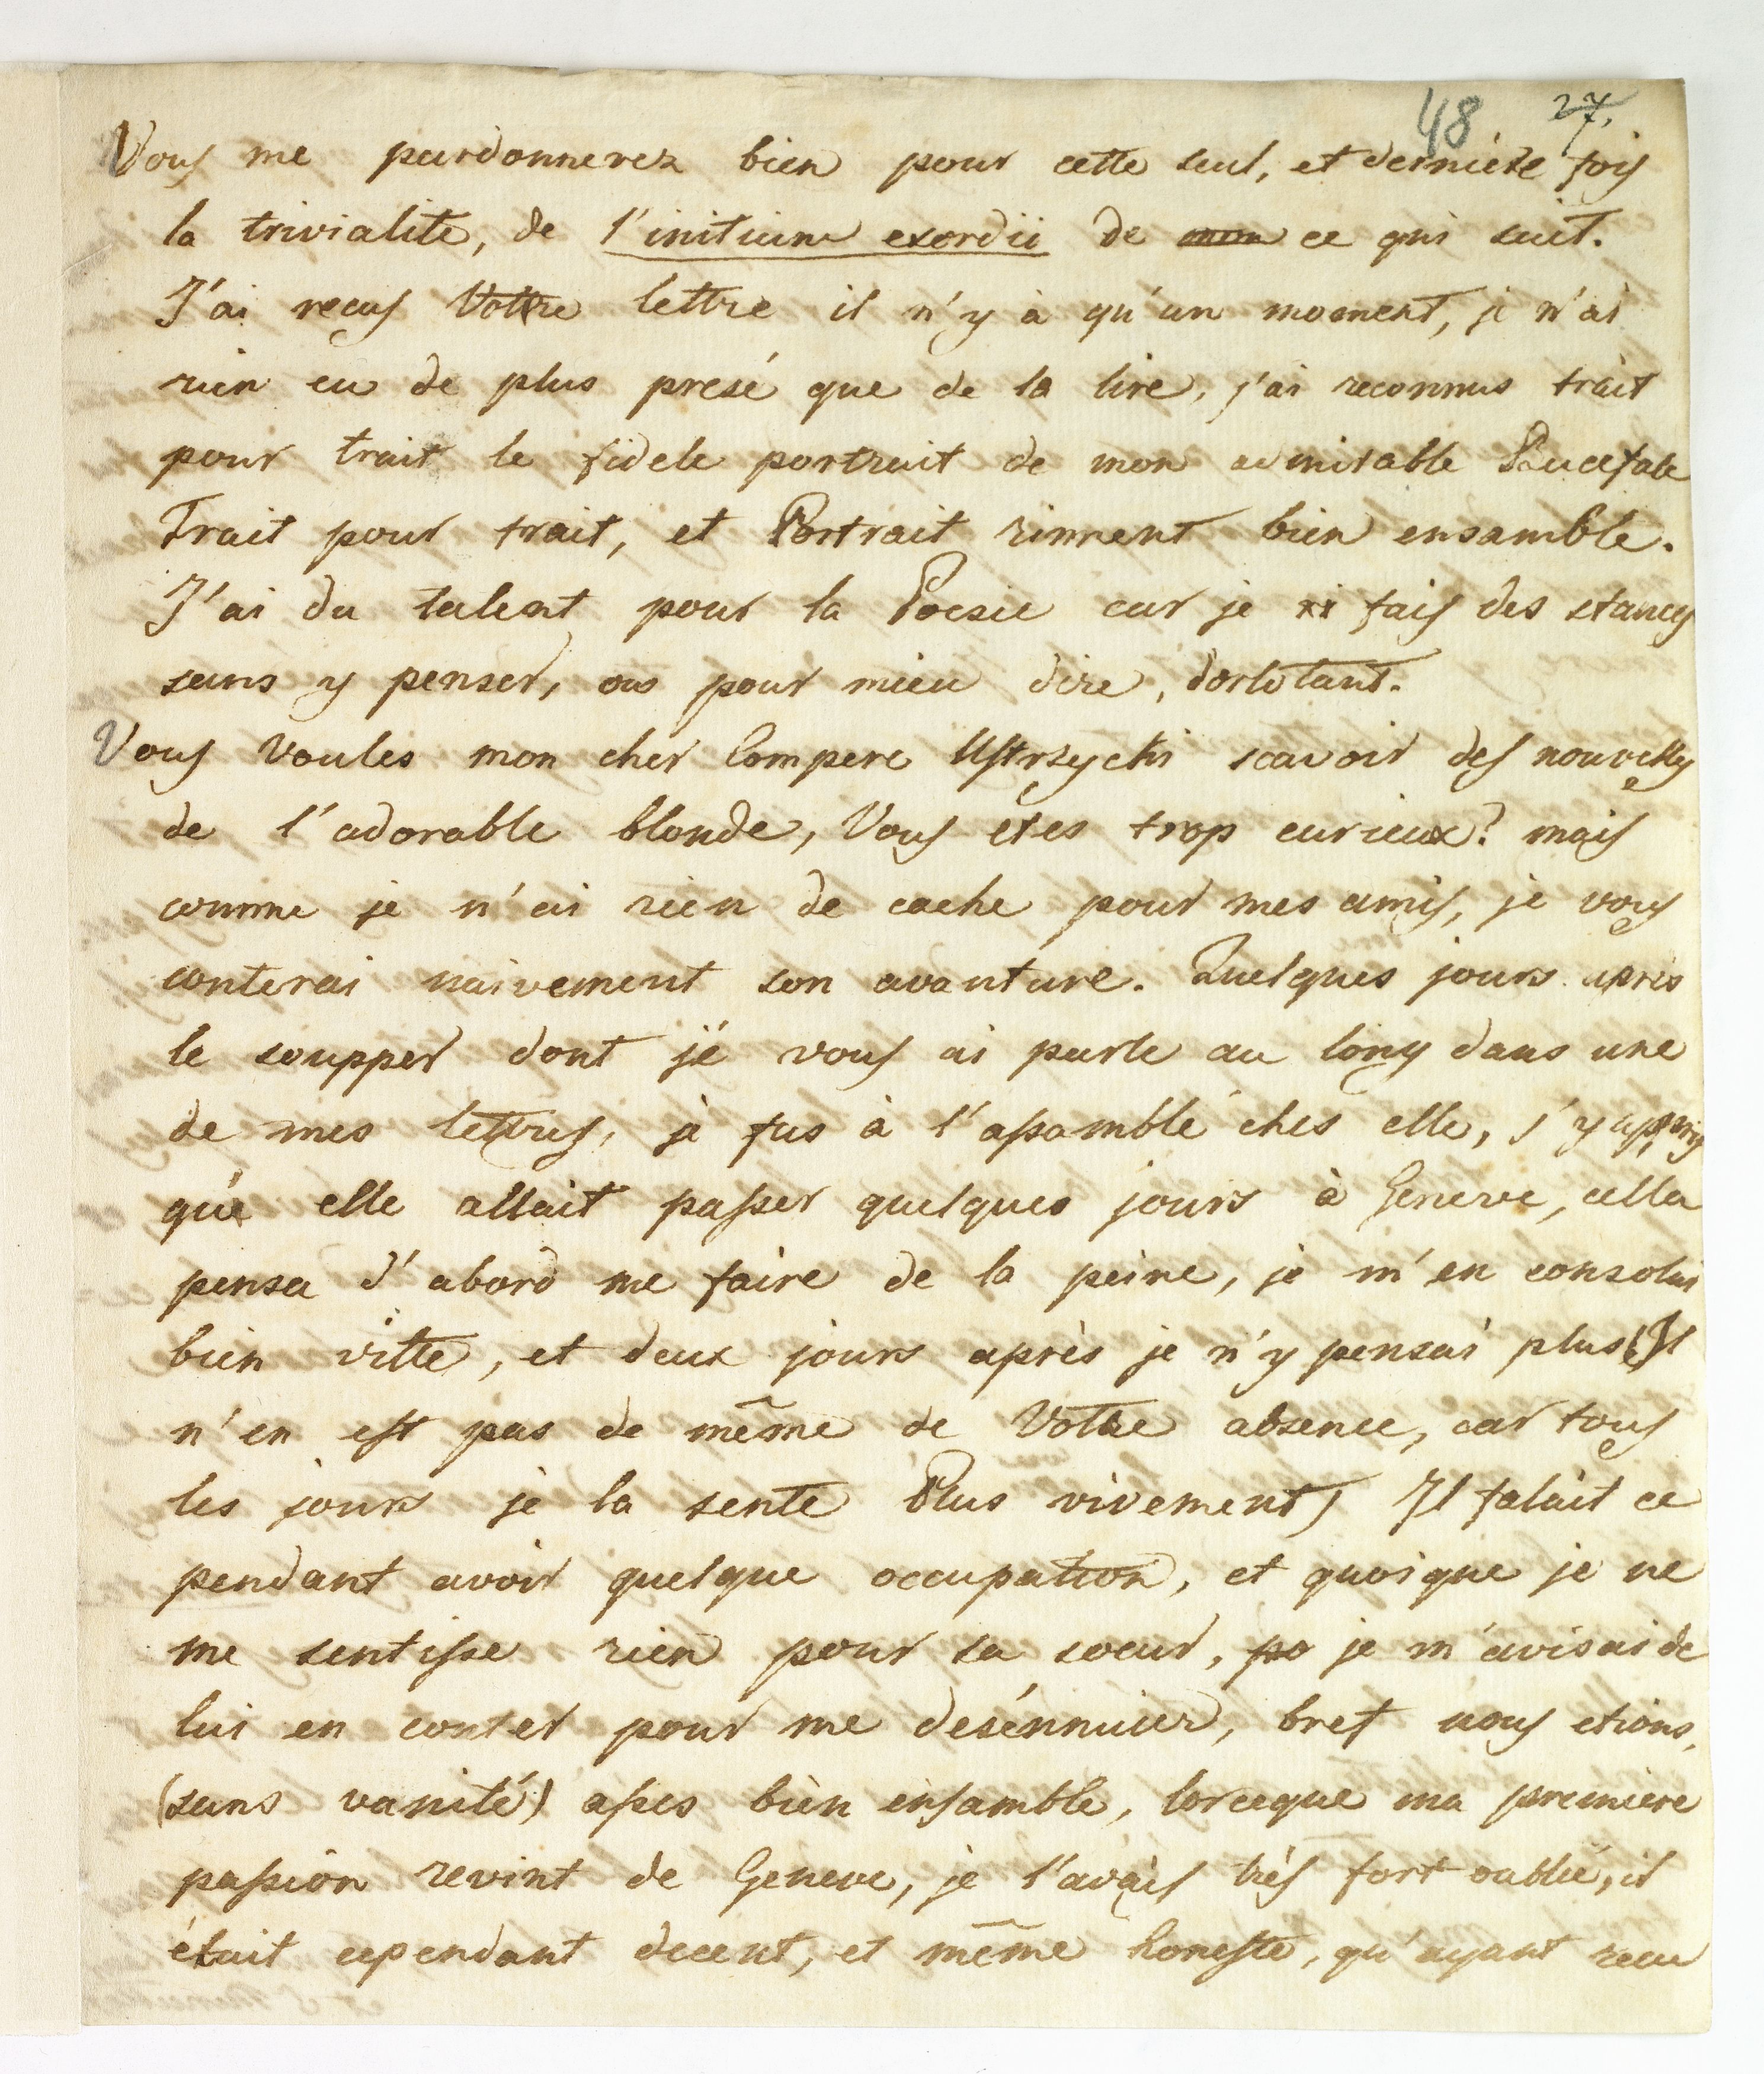 48 27.
Vous me pardonnerez bien pour cette seul, et derniére fois
la trivialite, de l'initium exordii de ce qui suit.
J'ai recus Vottre lettre il n'y à qu'un moment, je n'ai
rien eu de plus presé que de la lire, j'ai reconnus trait
pour trait le fidele portrait de mon admirable Bucefale
Trait pour trait, et Portrait riment bien ensamble.
J'ai du talent pour la Poesie car je fais des stances
sans y penser, ou pour mieu dire, dortotant.
Vous voules mon cher Compere Ustrzycki scavoir des nouvelles
de l'adorable blonde, Vous etes trop curieux? mais
comme je n'ai rien de cache pour mes amis, je vous
conterai naivement son avanture. Quelques jours après
le soupper dont je vous ai parle au long dans une
de mes lettres, je fus à l'assamblé ches elle, j'y appris
que elle allait passer quelques jours à Geneve, cella
pensa d'abord me faire de la peine, je m'en consolai
bien vitte, et deux jours après je n'y pensai plus (Il
n'en est pas de même de Vottre absence, car tous
les jours je la sente Plus vivement) Il falait ce
pendant avoir quelque occupation, et quoique je ne
me sentisse rien pour sa soeur, po je m'avisai de
lui en conter pour me desénnuier, bref nous etions,
(sans vanité) asses bien ensamble, lorceque ma premiere
passion revint de Geneve, je l'avais très fort oublié, il
était cependant decent, et même honeste, qu'ayant recu